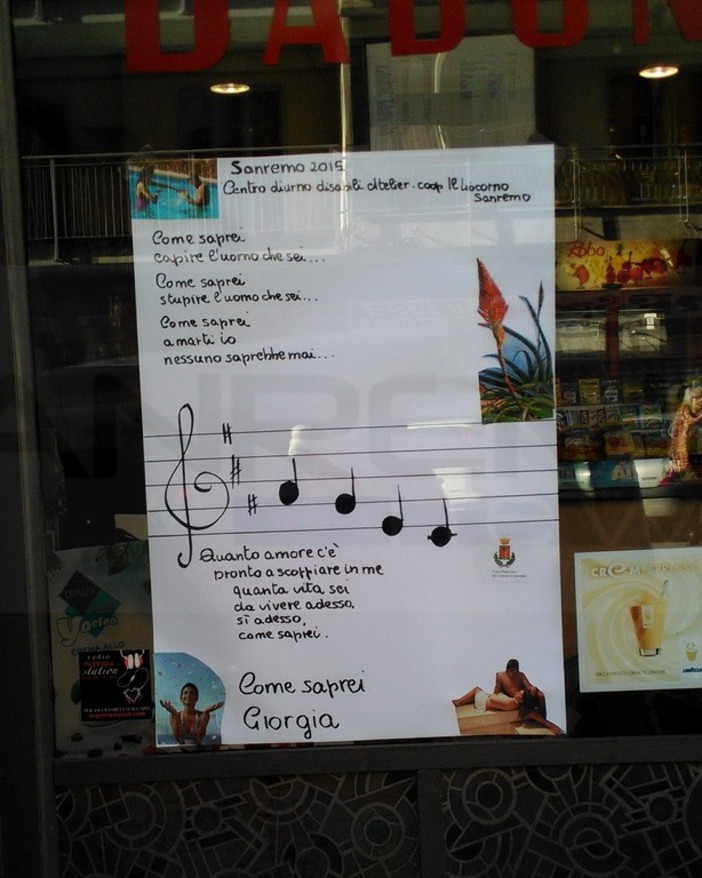 DADON
Sanremo 2015
Centro diurno disabili atelier. coop Il Liocorno
Sanremo
Come saprei
capire l'uomo che sei...
Come saprei
stupire l'uomo che sei...
Come saprei
amarti io
nessuno saprebbe mai...
Quanto amore c'è
pronto a scoppiare in me
quanta vita sei
da vivere adesso,
sì adesso,
come saprei.
Come saprei
Giorgia
Robo
Yoclea
CREMA ALLO
radio
station
CREMESPRESSO